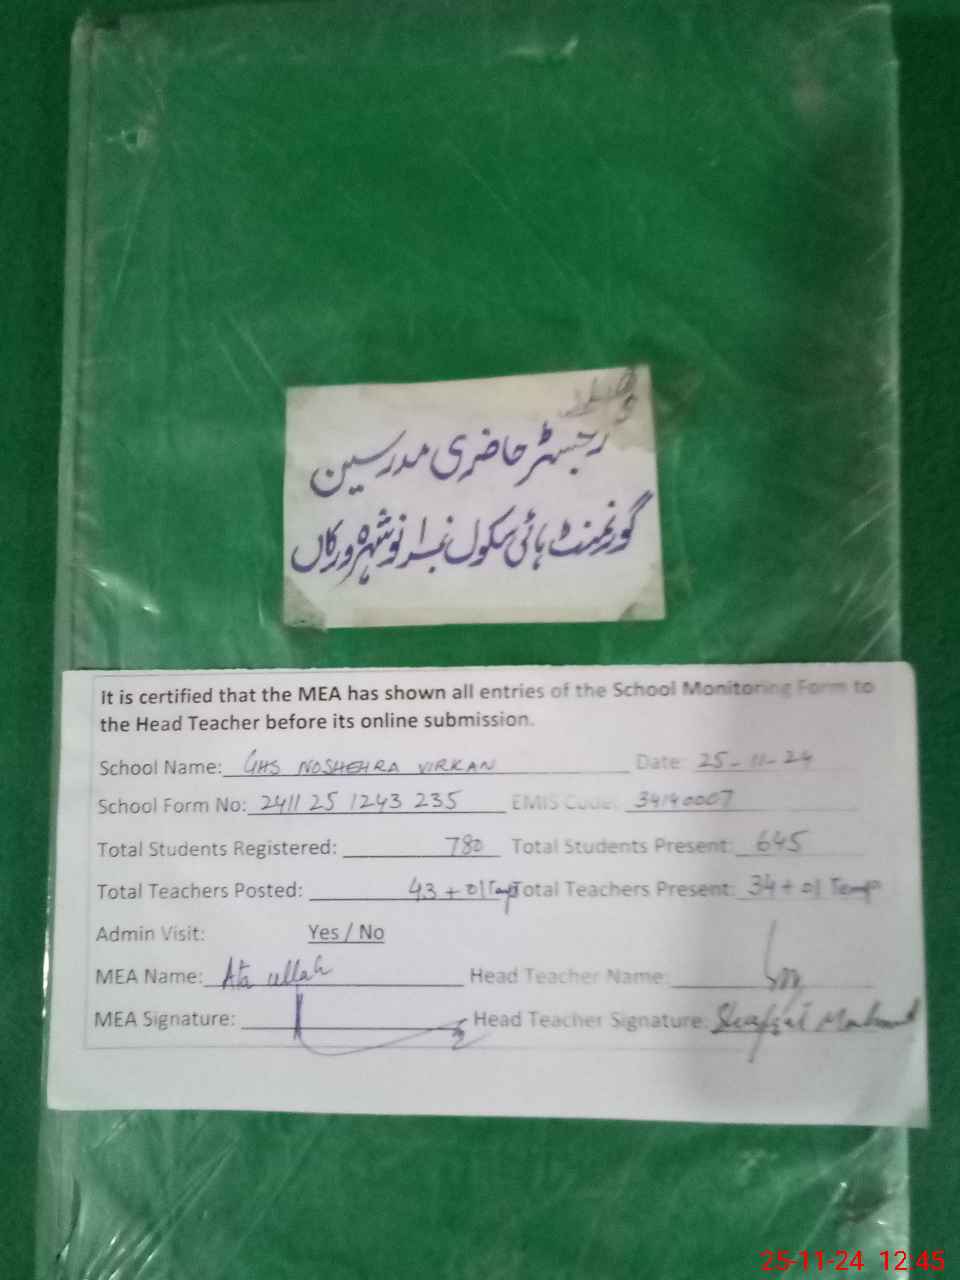 رجسٹر حاضری مدرسین
گورنمنٹ ہائی سکول نمبر۱ نوشہرہ ورکاں
It is certified that the MEA has shown all entries of the School Monitoring Form to
the Head Teacher before its online submission.
School Name: GHS NOSHEHRA VIRKAN Date: 25-11-24
School Form No: 2411 25 1243 235 EMIS Code: 34140007
Total Students Registered: 780 Total Students Present: 645
Total Teachers Posted: 43 + 01 Temp Total Teachers Present: 34 + 01 Temp
Admin Visit: Yes / No
MEA Name: Ata ullah Head Teacher Name:
MEA Signature: Head Teacher Signature:
25-11-24 12:45